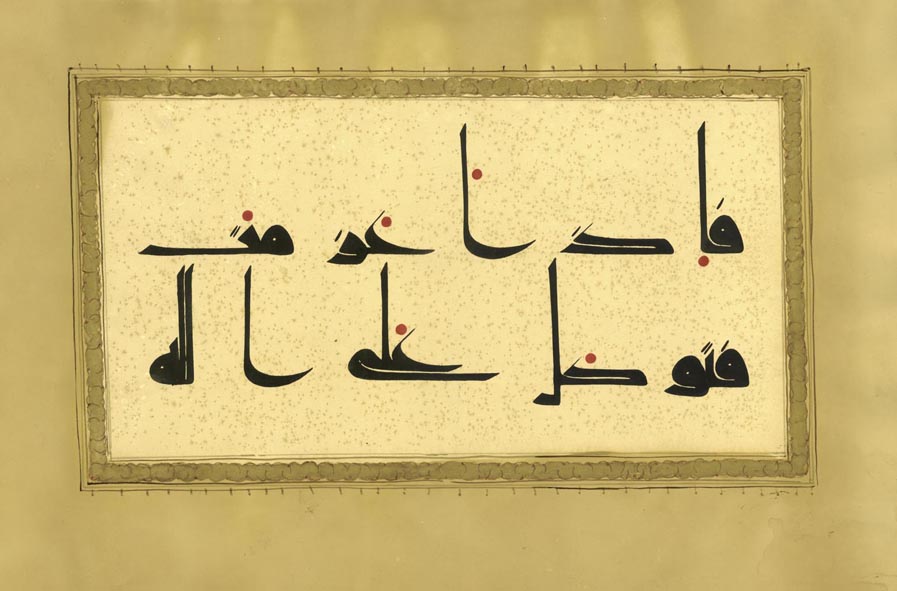 فاذا عزمت
فتوكل على الله